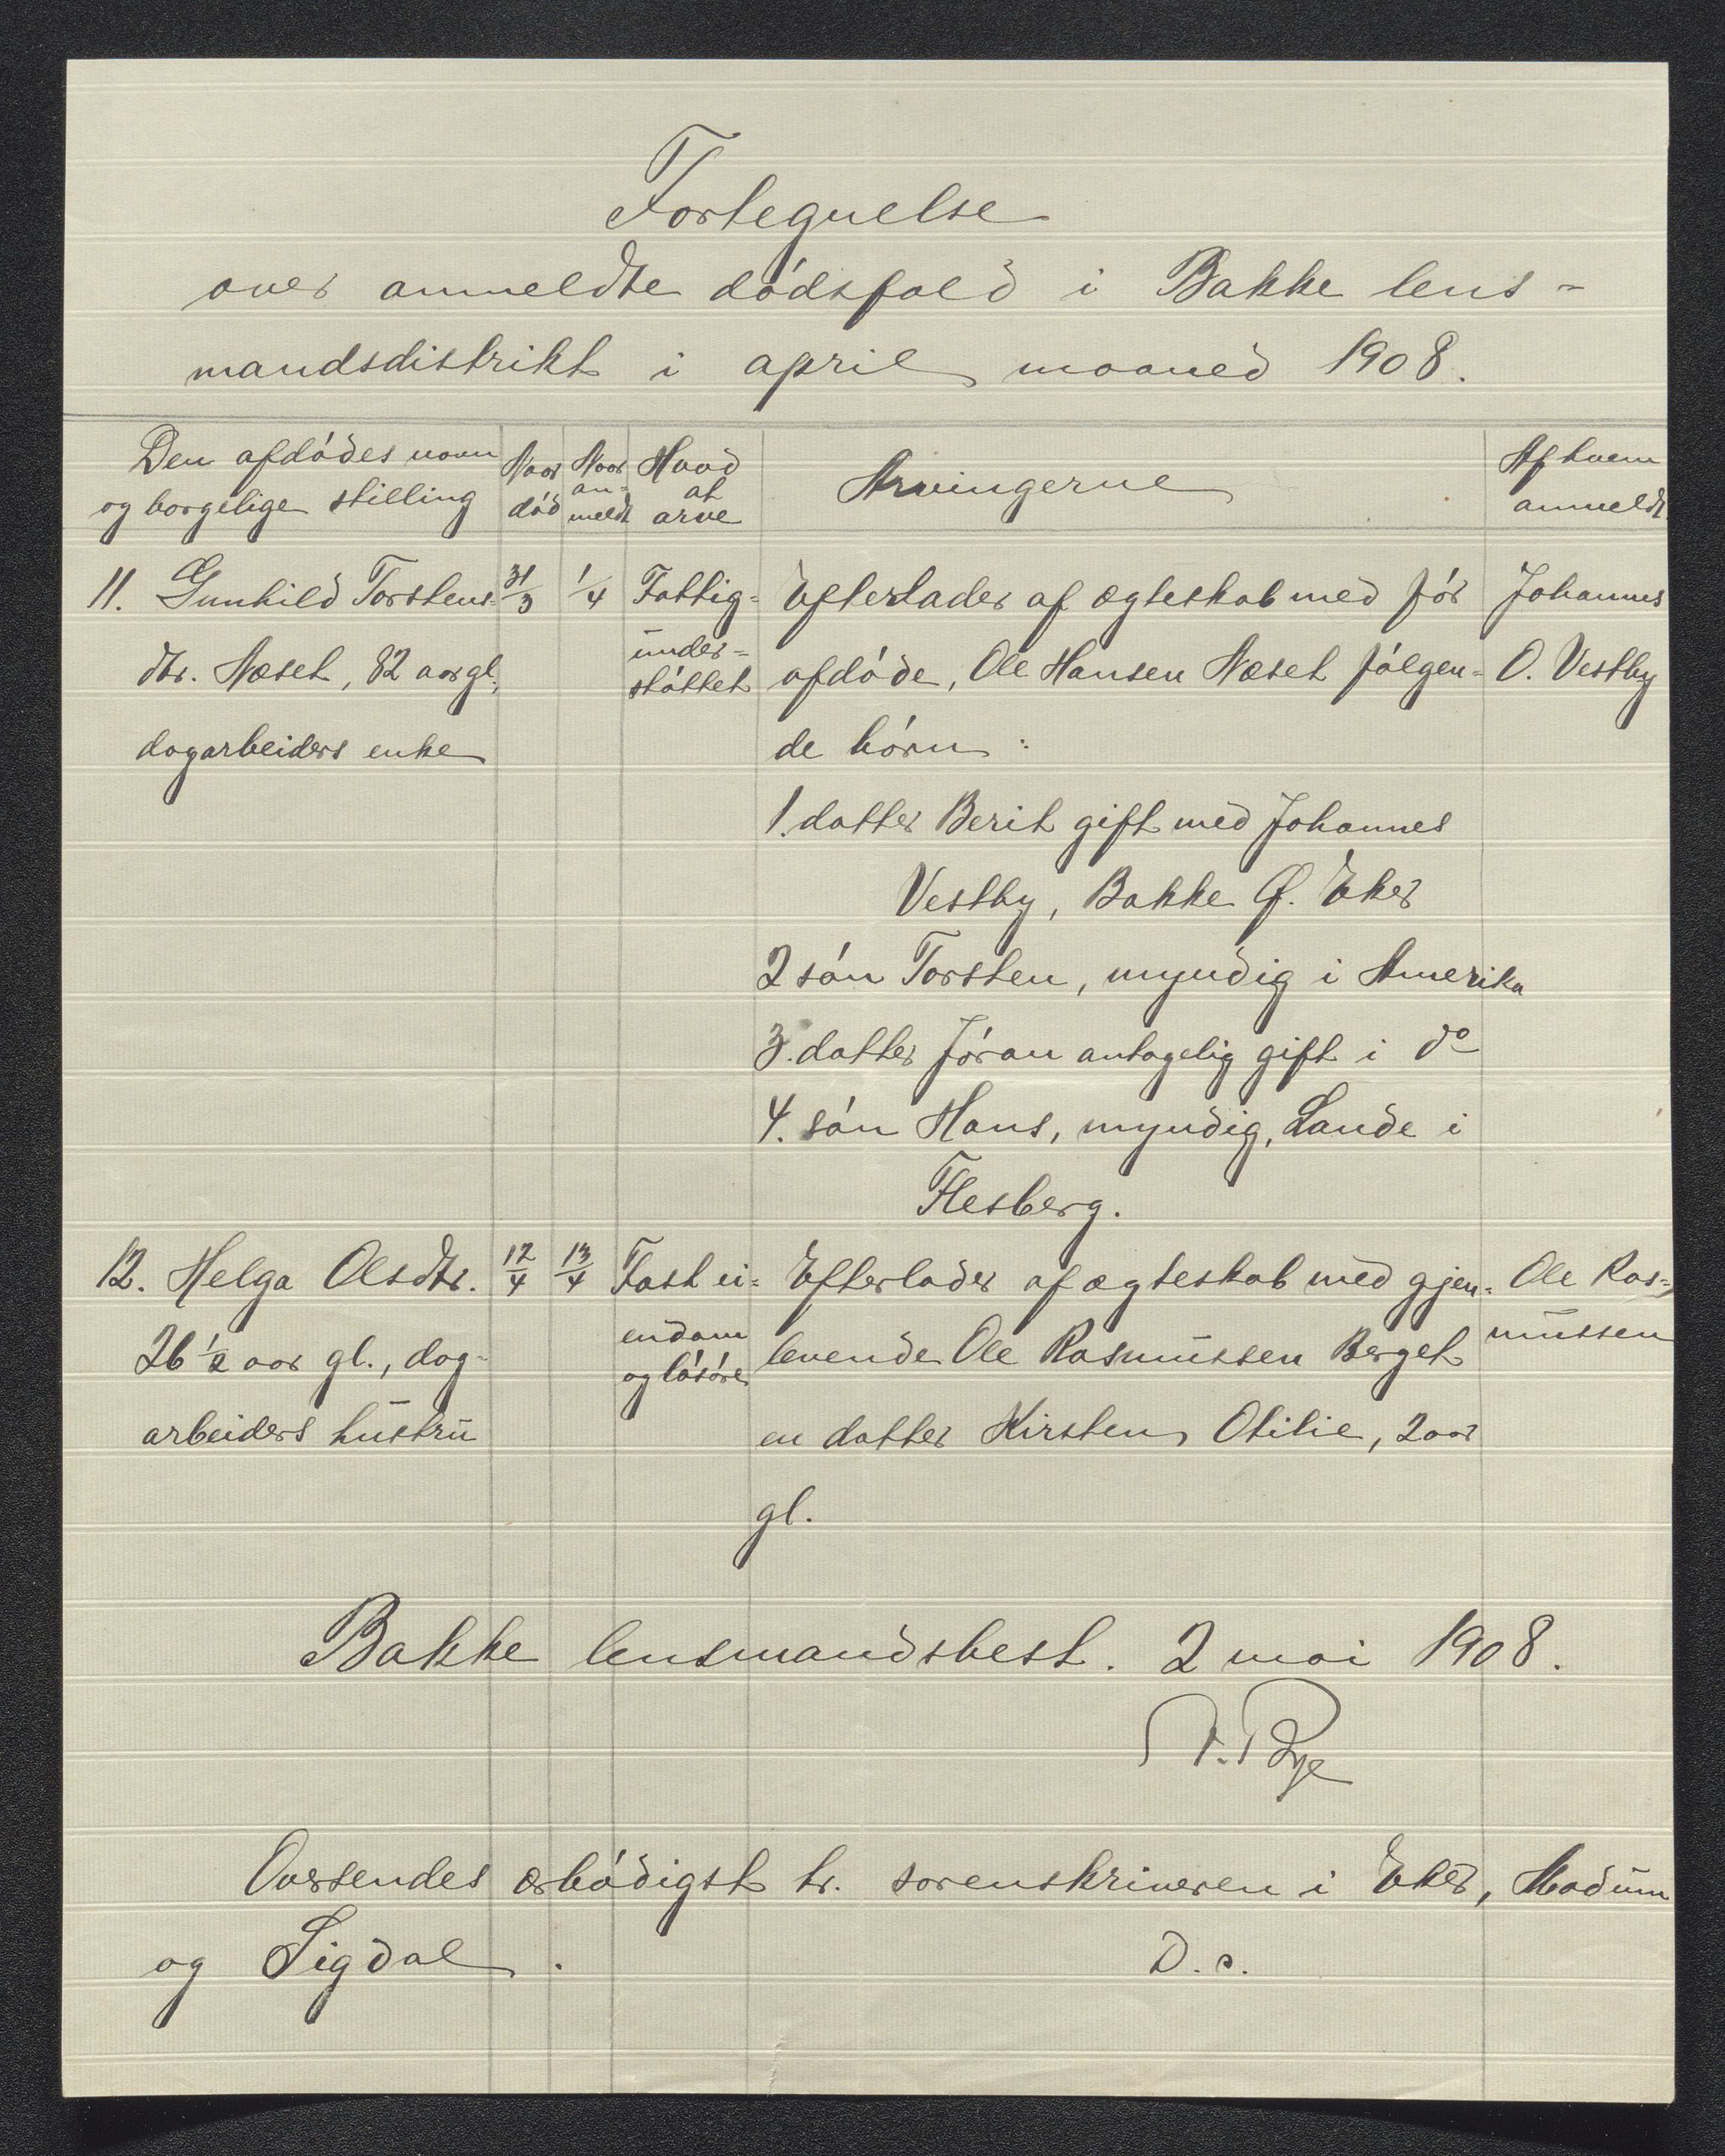 Fortegnelse
over anmeldte dødsfald i Bakke lens-
mandsdistrikt i april maaned 1908.
Den afdødes navn
og borgelige stilling
Naar
død
Naar
an-
meldt
Hvad
at
arve
Arvingerne
Af hvem
anmeldt.
11. Gunhild Torstens-
dtr. Næset, 82 aar gl.,
dagarbeiders enke
31/3
1/4
Fattig-
under-
støttet
Efterlader af ægteskab med før
afdøde, Ole Hansen Næset følgen-
de børn:
1. datter Berit gift med Johannes
Vestby, Bakke Ø. Eker
2 søn Torsten, myndig i Amerika
3. datter Jøran antagelig gift i do
4. søn Hans, myndig, Lande i
Flesberg.
Johannes
O. Vestby
12. Helga Olsdtr.
26 1/2 aar gl., dag-
arbeiders hustru
12/4
13/4
Fast ei-
endom
og løsøre
Efterlader af ægteskab med gjen-
levende Ole Rasmussen Berget
en datter Kirsten Otilie, 2 aar
gl.
Ole Ras-
mussen
Bakke lensmandsbest. 2 mai 1908.
Bye
Oversendes ærbødigst hr. sorenskriveren i Eker, Modum
og Sigdal.
D. s.